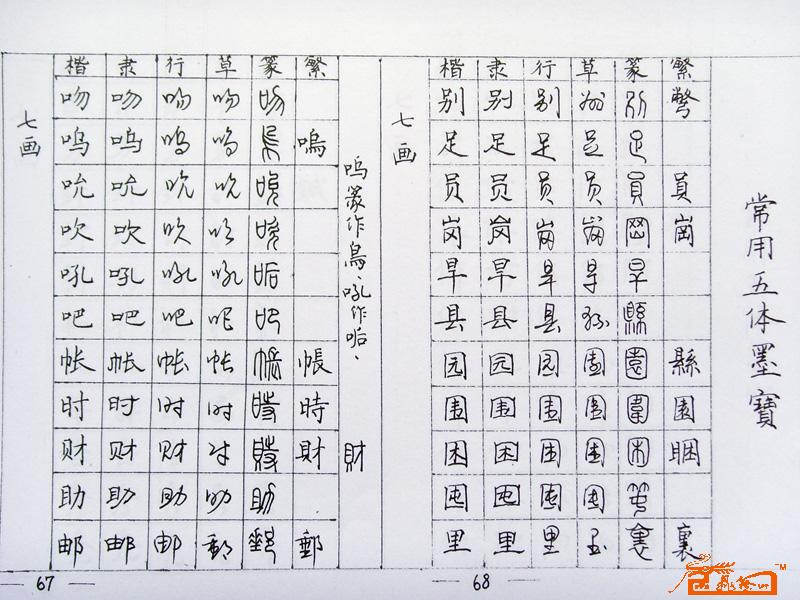 楷 隶 行 草 篆 繁
七画
吻 吻 吻 吻 吻
呜 呜 呜 呜 嗚
吮 吮 吮 吮 吮
吹 吹 吹 吹 吹
吼 吼 吼 吼 㖃
吧 吧 吧 吧 吧
帐 帐 帐 帐 帳 帳
时 时 时 时 時 時
财 财 财 财 財 財
助 助 助 助 助
邮 邮 邮 郵 郵 郵
嗚篆作烏、吼作㖃、
財
67
楷 隶 行 草 篆 繁
七画
别 别 别 别 別
足 足 足 足 足
员 员 员 员 員 員
岗 岗 岗 岗 岡 崗
旱 旱 旱 旱 旱
县 县 县 縣 縣
园 园 园 園 園 縣
围 围 围 圍 圍 園
困 困 困 困 困 睏
囤 囤 囤 囤
里 里 里 里 裏 裏
68
常用五体墨寶
TM